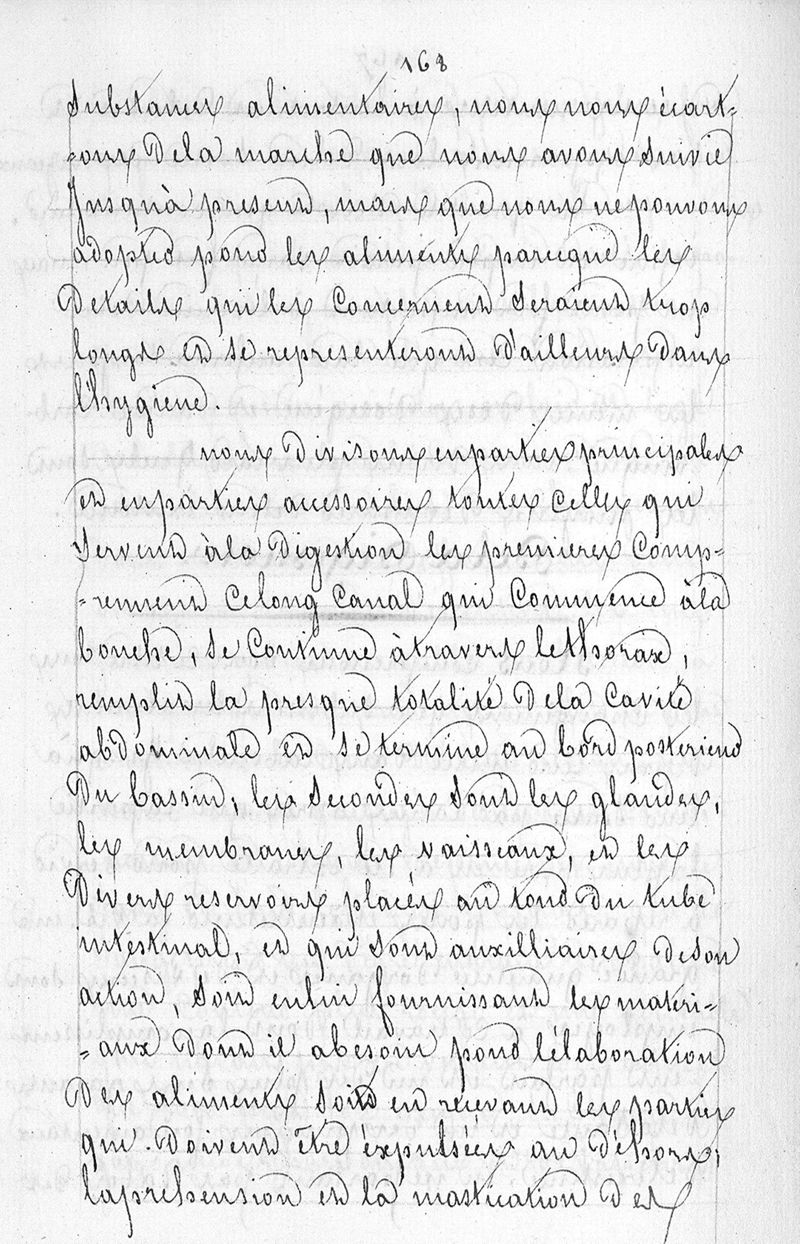 168
substances alimentaires, nous nous écart-
-ons de la marche que nous avons suivie
Jusqu'à present, mais que nous ne pouvons
adopter pour les aliments parceque les
Details qui les Concernent seraient trop
longs et se representeront d'ailleurs dans
l'hygiène.
nous divisons en parties principales
et en parties accessoires toutes celles qui
servent à la digestion les premieres Comp-
-rennent ce long Canal qui Commence à la
bouche, se Continue à travers le thorax,
remplit la presque totalité de la Cavité
abdominale et se termine au bord posterieur
Du bassin, les secondes sont les glandes,
les membranes, les vaisseaux, et les
Divers reservoirs placés au tour du tube
intestinal, et qui sont auxilliaires de son
action, soit enfin fournissant les matéri-
-aux dont il a besoin pour l'élaboration
Des aliments soit en recevant les parties
qui doivent être expulsées au déhors,
la préhension et la mastication des